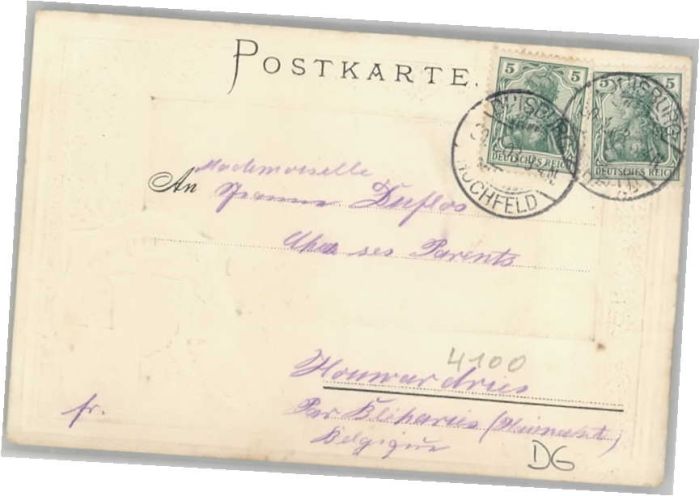 POSTKARTE.
5 5
5
DEUTSCHES REICH
DEUTSCHES REICH
DUISBURG
HOCHFELD
Mademoiselle
An Jeanne Duflos
Chez ses Parents
4100
Houwardries
Par Bléharies (Hainaut)
Belgique
fr.
DG